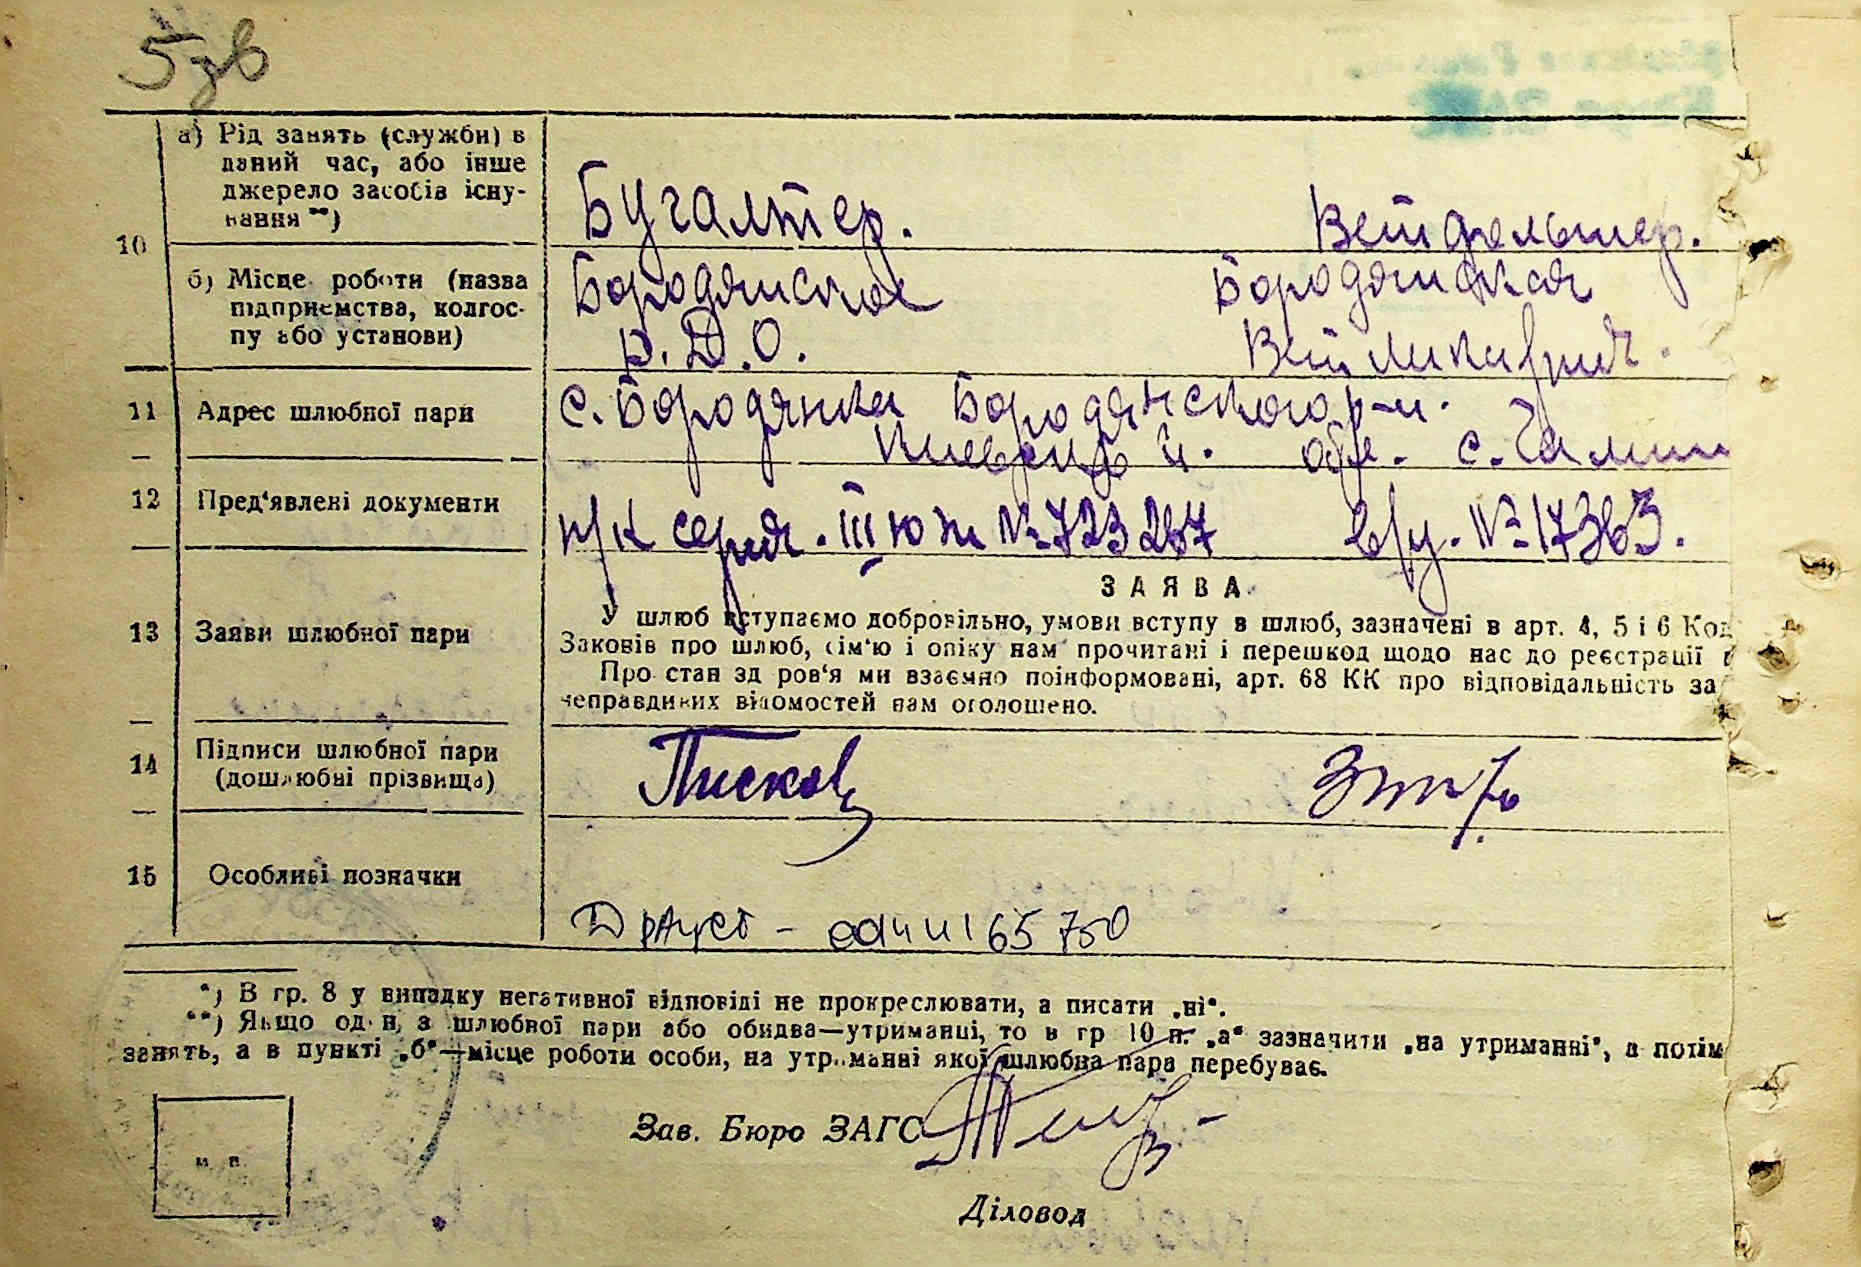 5 зв
а) Рід занять (служби) в
даний час, або інше
джерело засобів існу-
вання **)
Бугалтер. Ветфельшер.
10
б) Місце роботи (назва
підприємства, колгос-
пу або установи)
Бородянское Бородянская
р.Д.О.
11 Адрес шлюбної пари
с. Бородянка Бородянского р-н.
Киевской обл.
12 Пред'явлені документи
п/к серия. III юж № 723267 в/у. № 17363.
ЗАЯВА
13 Заяви шлюбної пари
У шлюб вступаємо добровільно, умови вступу в шлюб, зазначені в арт. 4, 5 і 6 Код
Законів про шлюб, сім'ю і опіку нам прочитані і перешкод щодо нас до реєстрації
Про стан здоров'я ми взаємно поінформовані, арт. 68 КК про відповідальність за
неправдивих відомостей нам оголошено.
14 Підписи шлюбної пари
(дошлюбні прізвища)
15 Особливі позначки
165750
*) В гр. 8 у випадку негативної відповіді не прокреслювати, а писати „ні".
**) Якщо один з шлюбної пари або обидва—утриманці, то в гр 10 п. „а" зазначити „на утриманні", а потім
занять, а в пункті „б"—місце роботи особи, на утриманні якої шлюбна пара перебуває.
Зав. Бюро ЗАГС
м п
Діловод